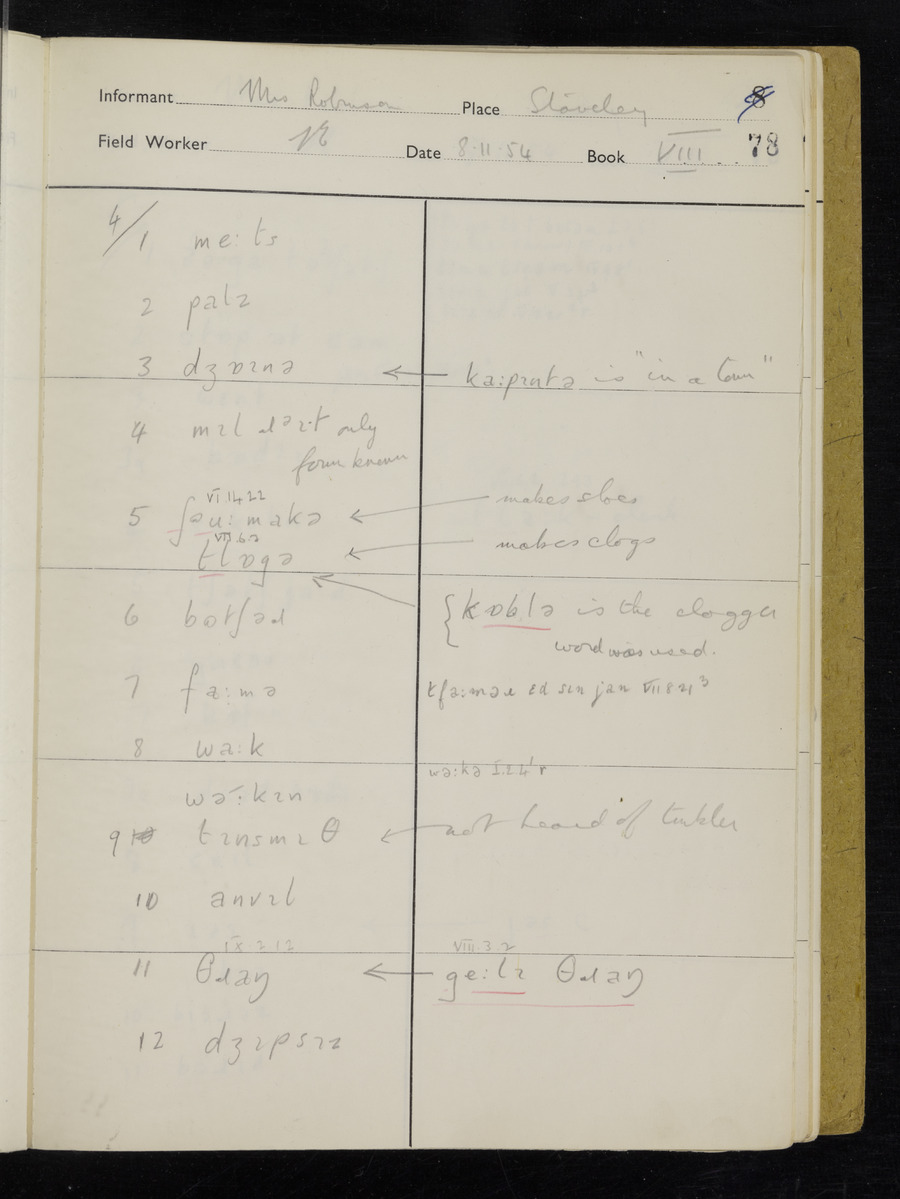 Informant Mrs Robinson Place Staveley 8
Field Worker Date 8.11.54 Book VIII 78
4/1 me:ts
2 palz
3 dʒɒɪnə ← ka:pɪntə is "in a town"
4 mɪl ɹəɪt only
form known
VI.14.22
5 ʃəu:makə ← makes shoes
tlɒgə ← makes clogs
6 botʃəɹ
{kɒblə is the clogger
word was used.
7 fa:mə tfa:məɹ ɪd sɪn jan VII 8 21³
8 wa:k
wə:kə
wə:kɪn
9 tɪnsmɪθ ← not heard of tinkler
10 anvɪl
IX 2 12 VIII.3.2
11 θɹaŋ ← ge:lɪ θɹaŋ
12 dʒɪpsɪz